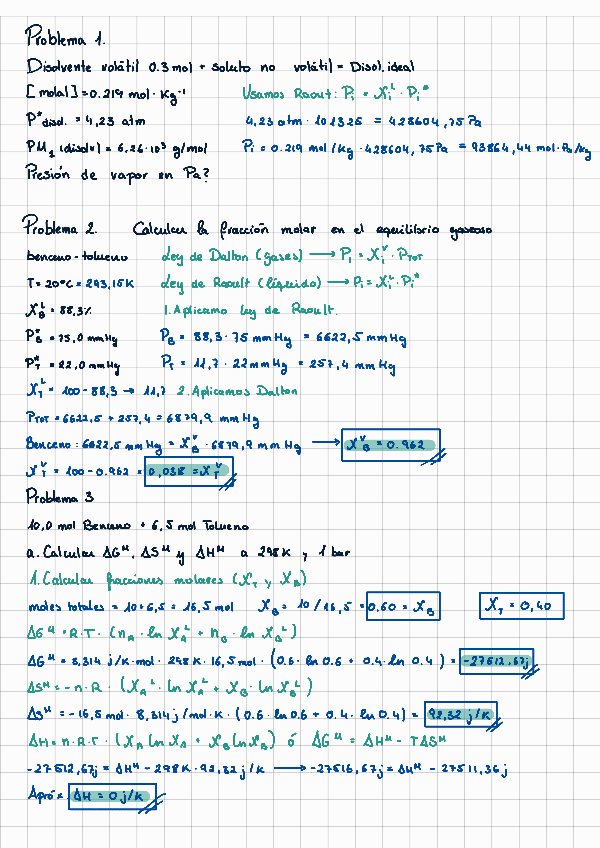 Problema 1.
Disolvente volátil 0.3 mol + soluto no volátil = Disol. ideal
[molal] = 0.219 mol · Kg⁻¹ Usamos Raoult: Pᵢ = Xᵢᴸ · Pᵢ*
P*disol. = 4,23 atm 4,23 atm · 101325 = 428604,75 Pa
PM₁ (disolv) = 6,26·10³ g/mol Pᵢ = 0.219 mol/Kg · 428604,75 Pa = 93864,44 mol·Pa/Kg
Presión de vapor en Pa?
Problema 2. Calcular la fracción molar en el equilibrio gaseoso
benceno - tolueno Ley de Dalton (gases) → Pᵢ = Xᵢⱽ · P_TOT
T = 20°C = 293,15K Ley de Raoult (líquido) → Pᵢ = Xᵢᴸ · Pᵢ*
X_Bᴸ = 88,3% 1. Aplicamo ley de Raoult.
P_B* = 75,0 mmHg P_B = 88,3 · 75 mmHg = 6622,5 mmHg
P_T* = 22,0 mmHg P_T = 11,7 · 22 mmHg = 257,4 mmHg
X_Tᴸ = 100 - 88,3 → 11,7 2. Aplicamos Dalton
P_TOT = 6622,5 + 257,4 = 6879,9 mmHg
Benceno: 6622,5 mmHg = X_Bⱽ · 6879,9 mmHg → X_Bⱽ = 0.962
X_Tⱽ = 100 - 0.962 = 0,038 = X_Tⱽ
Problema 3
10,0 mol Benceno + 6,5 mol Tolueno
a. Calcular ΔGᴹ, ΔSᴹ y ΔHᴹ a 298K y 1 bar
1. Calcular fracciones molares (X_T y X_B)
moles totales = 10 + 6,5 = 16,5 mol X_B = 10/16,5 = 0,60 = X_B X_T = 0,40
ΔGᴹ = R·T·(n_A · ln X_Aᴸ + n_B · ln X_Bᴸ)
ΔGᴹ = 8,314 j/K·mol · 298K · 16,5 mol · (0.6 · ln 0.6 + 0.4 · ln 0.4) = -27512,67j
ΔSᴹ = -n·R · (X_Aᴸ · ln X_Aᴸ + X_B · ln X_Bᴸ)
ΔSᴹ = -16,5 mol · 8,314 j/mol·K · (0.6 · ln 0.6 + 0.4 · ln 0.4) = 92,32 j/K
ΔH = n·R·T · (X_A ln X_A + X_B ln X_B) ó ΔGᴹ = ΔHᴹ - TΔSᴹ
-27512,67j = ΔHᴹ - 298K · 92,32 j/K → -27516,67j = ΔHᴹ - 27511,36j
Apróx. ΔH = 0 j/K